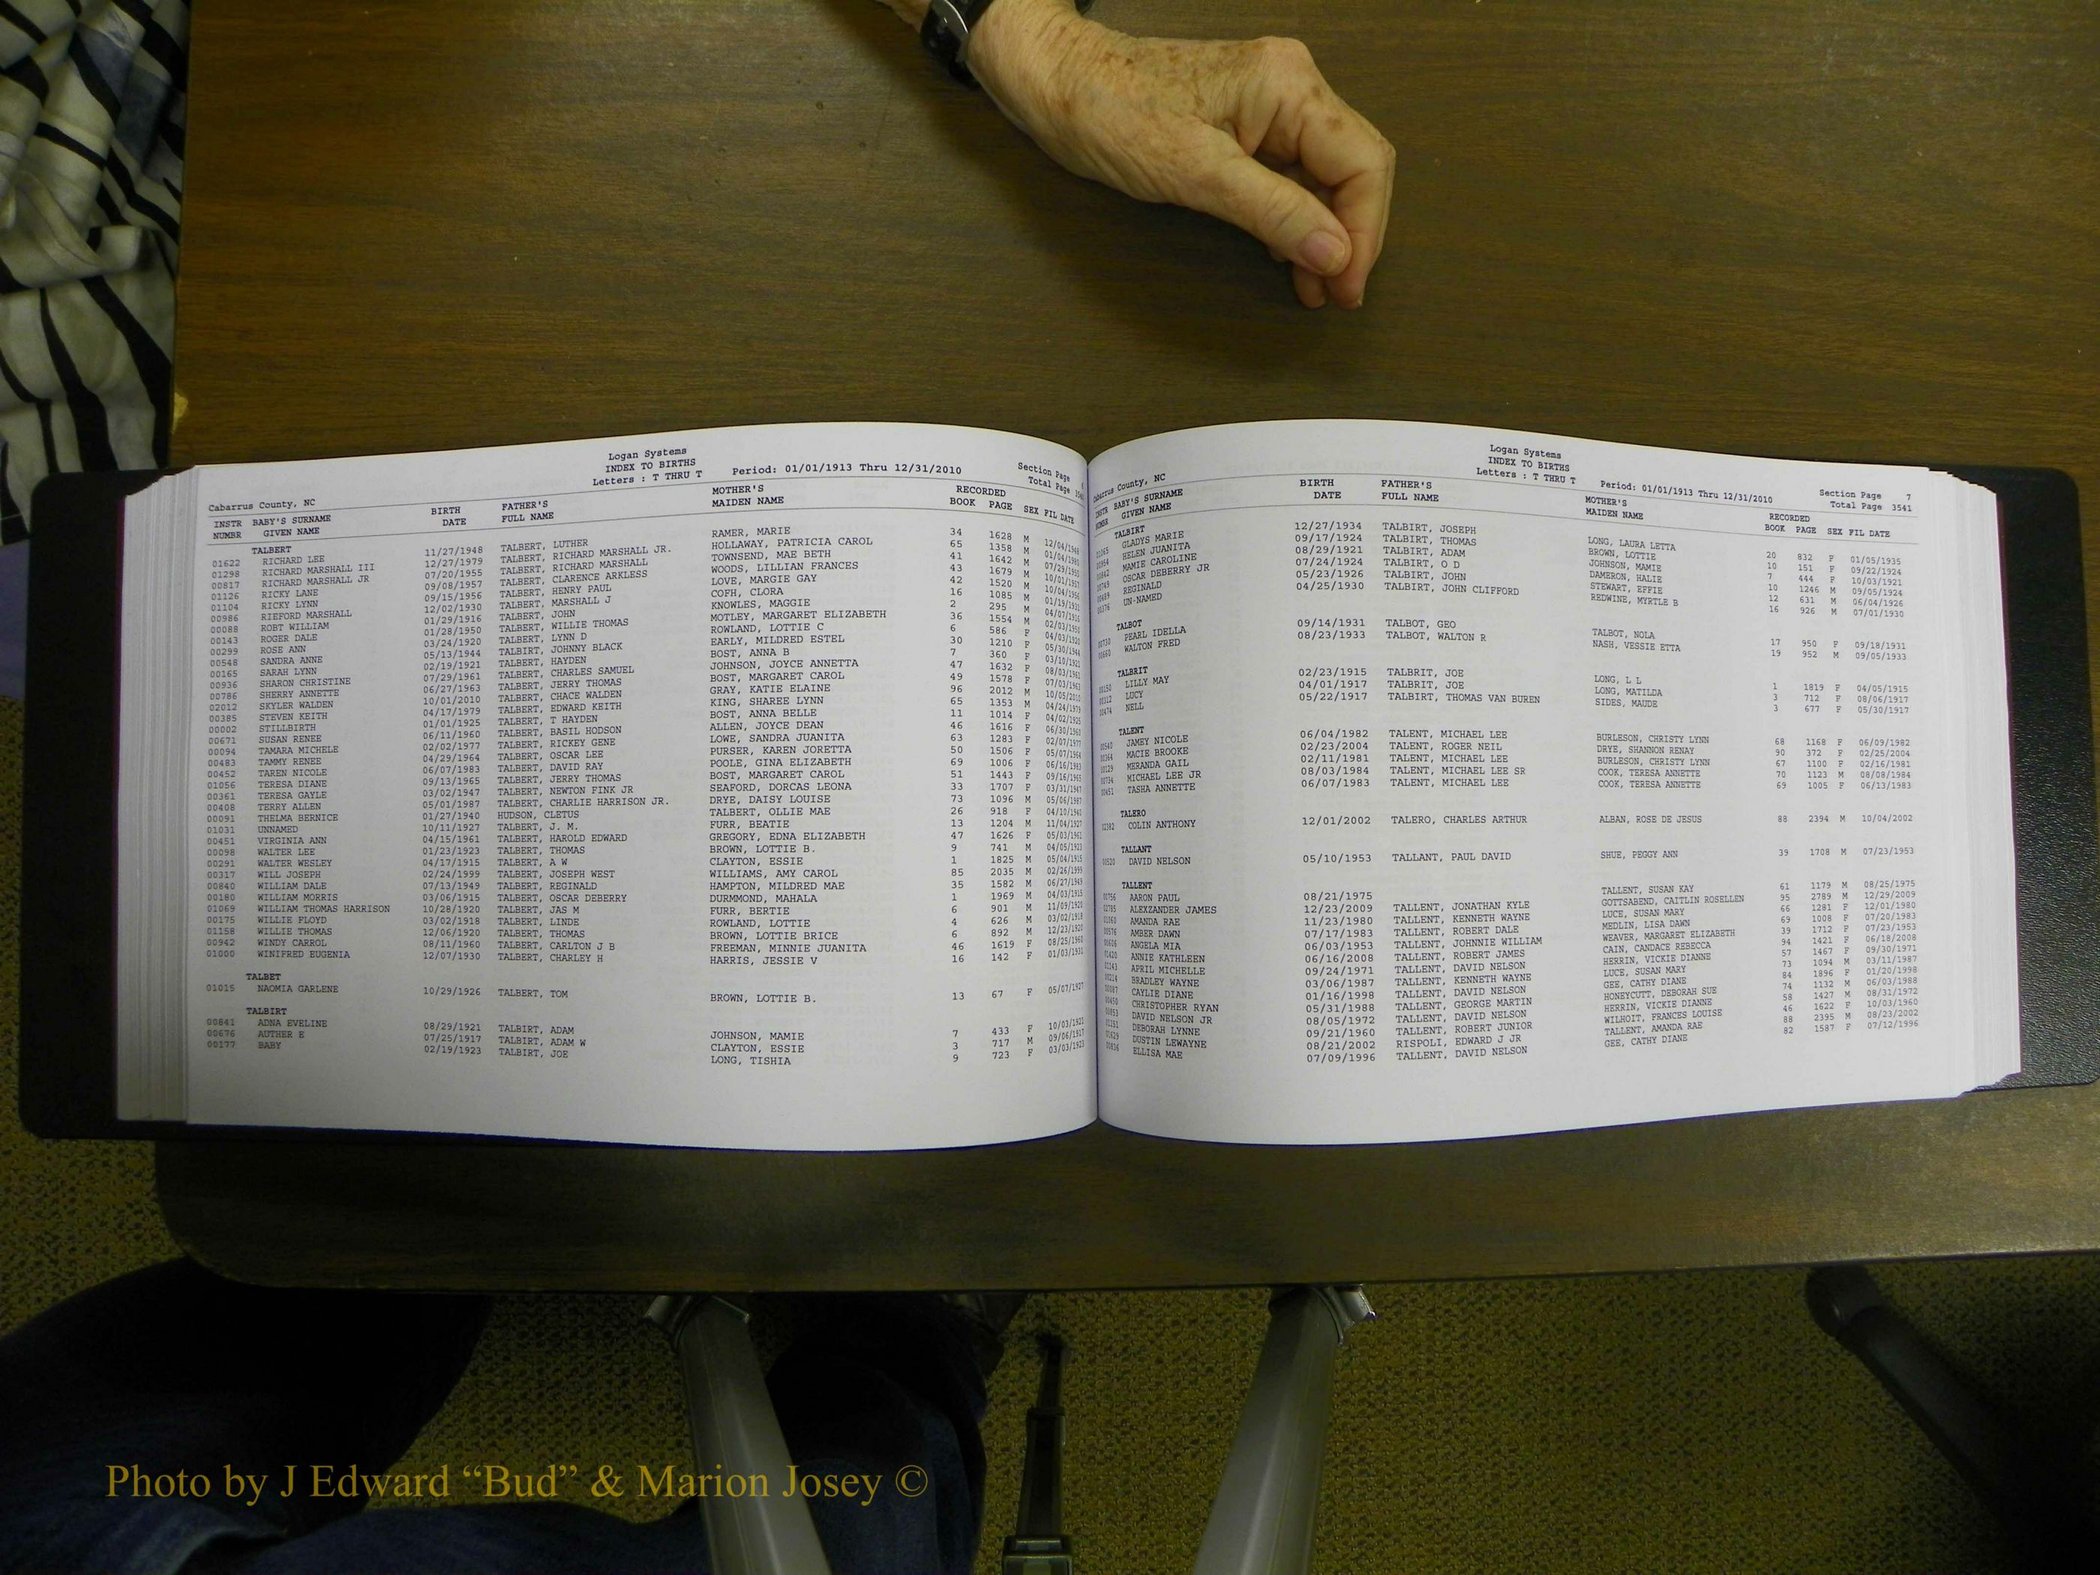 Logan Systems
INDEX TO BIRTHS
Letters : T THRU T Period: 01/01/1913 Thru 12/31/2010
Section Page 6
Total Page
Cabarrus County, NC
INSTR BABY'S SURNAME BIRTH FATHER'S MOTHER'S RECORDED
NUMBR GIVEN NAME DATE FULL NAME MAIDEN NAME BOOK PAGE SEX FIL DATE
TALBERT
01622 RICHARD LEE 11/27/1948 TALBERT, LUTHER RAMER, MARIE 34 1628 M 12/04/1948
01298 RICHARD MARSHALL III 12/27/1979 TALBERT, RICHARD MARSHALL JR. HOLLAWAY, PATRICIA CAROL 65 1358 M 01/04/1980
00817 RICHARD MARSHALL JR 07/20/1955 TALBERT, RICHARD MARSHALL TOWNSEND, MAE BETH 41 1642 M 07/29/1955
01126 RICKY LANE 09/08/1957 TALBERT, CLARENCE ARKLESS WOODS, LILLIAN FRANCES 43 1679 M 10/01/1957
01104 RICKY LYNN 09/15/1956 TALBERT, HENRY PAUL LOVE, MARGIE GAY 42 1520 M 10/04/1956
00986 RIEFORD MARSHALL 12/02/1930 TALBERT, MARSHALL J COFH, CLORA 16 1085 M 01/19/1931
00088 ROBT WILLIAM 01/29/1916 TALBERT, JOHN KNOWLES, MAGGIE 2 295 M 04/07/1916
00143 ROGER DALE 01/28/1950 TALBERT, WILLIE THOMAS MOTLEY, MARGARET ELIZABETH 36 1554 M 02/03/1950
00299 ROSE ANN 03/24/1920 TALBERT, LYNN D ROWLAND, LOTTIE C 6 586 F 04/03/1920
00548 SANDRA ANNE 05/13/1944 TALBIRT, JOHNNY BLACK EARLY, MILDRED ESTEL 30 1210 F 05/30/1944
00165 SARAH LYNN 02/19/1921 TALBERT, HAYDEN BOST, ANNA B 7 360 F 03/10/1921
00936 SHARON CHRISTINE 07/29/1961 TALBERT, CHARLES SAMUEL JOHNSON, JOYCE ANNETTA 47 1632 F 08/03/1961
00786 SHERRY ANNETTE 06/27/1963 TALBERT, JERRY THOMAS BOST, MARGARET CAROL 49 1578 F 07/03/1963
02012 SKYLER WALDEN 10/01/2010 TALBERT, CHACE WALDEN GRAY, KATIE ELAINE 96 2012 M 10/05/2010
00385 STEVEN KEITH 04/17/1979 TALBERT, EDWARD KEITH KING, SHAREE LYNN 65 1353 M 04/24/1979
00002 STILLBIRTH 01/01/1925 TALBERT, T HAYDEN BOST, ANNA BELLE 11 1014 F 04/02/1925
00671 SUSAN RENEE 06/11/1960 TALBERT, BASIL HODSON ALLEN, JOYCE DEAN 46 1616 F 06/30/1960
00094 TAMARA MICHELE 02/02/1977 TALBERT, RICKEY GENE LOWE, SANDRA JUANITA 63 1283 F 02/07/1977
00483 TAMMY RENEE 04/29/1964 TALBERT, OSCAR LEE PURSER, KAREN JORETTA 50 1506 F 05/07/1964
00452 TAREN NICOLE 06/07/1983 TALBERT, DAVID RAY POOLE, GINA ELIZABETH 69 1006 F 06/16/1983
01056 TERESA DIANE 09/13/1965 TALBERT, JERRY THOMAS BOST, MARGARET CAROL 51 1443 F 09/16/1965
00361 TERESA GAYLE 03/02/1947 TALBERT, NEWTON FINK JR SEAFORD, DORCAS LEONA 33 1707 F 03/31/1947
00408 TERRY ALLEN 05/01/1987 TALBERT, CHARLIE HARRISON JR. DRYE, DAISY LOUISE 73 1096 M 05/06/1987
00091 THELMA BERNICE 01/27/1940 HUDSON, CLETUS TALBERT, OLLIE MAE 26 918 F 04/10/1940
01031 UNNAMED 10/11/1927 TALBERT, J. M. FURR, BEATIE 13 1204 M 11/04/1927
00451 VIRGINIA ANN 04/15/1961 TALBERT, HAROLD EDWARD GREGORY, EDNA ELIZABETH 47 1626 F 05/03/1961
00098 WALTER LEE 01/23/1923 TALBERT, THOMAS BROWN, LOTTIE B. 9 741 M 04/05/1923
00291 WALTER WESLEY 04/17/1915 TALBERT, A W CLAYTON, ESSIE 1 1825 M 05/04/1915
00317 WILL JOSEPH 02/24/1999 TALBERT, JOSEPH WEST WILLIAMS, AMY CAROL 85 2035 M 02/26/1999
00840 WILLIAM DALE 07/13/1949 TALBERT, REGINALD HAMPTON, MILDRED MAE 35 1582 M 06/27/1949
00180 WILLIAM MORRIS 03/06/1915 TALBERT, OSCAR DEBERRY DURMMOND, MAHALA 1 1969 M 04/03/1915
01069 WILLIAM THOMAS HARRISON 10/28/1920 TALBERT, JAS M FURR, BERTIE 6 901 M 11/09/1920
00175 WILLIE FLOYD 03/02/1918 TALBERT, LINDE ROWLAND, LOTTIE 4 626 M 03/02/1918
01158 WILLIE THOMAS 12/06/1920 TALBERT, THOMAS BROWN, LOTTIE BRICE 6 892 M 12/23/1920
00942 WINDY CARROL 08/11/1960 TALBERT, CARLTON J B FREEMAN, MINNIE JUANITA 46 1619 F 08/25/1960
01000 WINIFRED EUGENIA 12/07/1930 TALBERT, CHARLEY H HARRIS, JESSIE V 16 142 F 01/03/1931
TALBET
01015 NAOMIA GARLENE 10/29/1926 TALBERT, TOM BROWN, LOTTIE B. 13 67 F 05/07/1927
TALBIRT
00841 ADNA EVELINE 08/29/1921 TALBIRT, ADAM JOHNSON, MAMIE 7 433 F 10/03/1921
00676 AUTHER E 07/25/1917 TALBIRT, ADAM W CLAYTON, ESSIE 3 717 M 09/06/1917
00177 BABY 02/19/1923 TALBIRT, JOE LONG, TISHIA 9 723 F 03/03/1923
Logan Systems
INDEX TO BIRTHS
Letters : T THRU T Period: 01/01/1913 Thru 12/31/2010
Section Page 7
Total Page 3541
Cabarrus County, NC
INSTR BABY'S SURNAME BIRTH FATHER'S MOTHER'S RECORDED
NUMBR GIVEN NAME DATE FULL NAME MAIDEN NAME BOOK PAGE SEX FIL DATE
TALBIRT
01065 GLADYS MARIE 12/27/1934 TALBIRT, JOSEPH LONG, LAURA LETTA 20 832 F 01/05/1935
00954 HELEN JUANITA 09/17/1924 TALBIRT, THOMAS BROWN, LOTTIE 10 151 F 09/22/1924
00842 MAMIE CAROLINE 08/29/1921 TALBIRT, ADAM JOHNSON, MAMIE 7 444 F 10/03/1921
00749 OSCAR DEBERRY JR 07/24/1924 TALBIRT, O D DAMERON, HALIE 10 1246 M 09/05/1924
00489 REGINALD 05/23/1926 TALBIRT, JOHN STEWART, EFFIE 12 631 M 06/04/1926
00376 UN-NAMED 04/25/1930 TALBIRT, JOHN CLIFFORD REDWINE, MYRTLE B 16 926 M 07/01/1930
TALBOT
00730 PEARL IDELLA 09/14/1931 TALBOT, GEO TALBOT, NOLA 17 950 F 09/18/1931
00660 WALTON FRED 08/23/1933 TALBOT, WALTON R NASH, VESSIE ETTA 19 952 M 09/05/1933
TALBRIT
00150 LILLY MAY 02/23/1915 TALBRIT, JOE LONG, L L 1 1819 F 04/05/1915
00312 LUCY 04/01/1917 TALBRIT, JOE LONG, MATILDA 3 712 F 08/06/1917
00474 NELL 05/22/1917 TALBIRT, THOMAS VAN BUREN SIDES, MAUDE 3 677 F 05/30/1917
TALENT
00540 JAMEY NICOLE 06/04/1982 TALENT, MICHAEL LEE BURLESON, CHRISTY LYNN 68 1168 F 06/09/1982
00364 MACIE BROOKE 02/23/2004 TALENT, ROGER NEIL DRYE, SHANNON RENAY 90 372 F 02/25/2004
00129 MERANDA GAIL 02/11/1981 TALENT, MICHAEL LEE BURLESON, CHRISTY LYNN 67 1100 F 02/16/1981
00734 MICHAEL LEE JR 08/03/1984 TALENT, MICHAEL LEE SR COOK, TERESA ANNETTE 70 1123 M 08/08/1984
00451 TASHA ANNETTE 06/07/1983 TALENT, MICHAEL LEE COOK, TERESA ANNETTE 69 1005 F 06/13/1983
TALERO
COLIN ANTHONY 12/01/2002 TALERO, CHARLES ARTHUR ALBAN, ROSE DE JESUS 88 2394 M 10/04/2002
TALLANT
00520 DAVID NELSON 05/10/1953 TALLANT, PAUL DAVID SHUE, PEGGY ANN 39 1708 M 07/23/1953
TALLENT
00756 AARON PAUL 08/21/1975 TALLENT, SUSAN KAY 61 1179 M 08/25/1975
02785 ALEXZANDER JAMES 12/23/2009 TALLENT, JONATHAN KYLE GOTTSABEND, CAITLIN ROSELLEN 95 2789 M 12/29/2009
01060 AMANDA RAE 11/23/1980 TALLENT, KENNETH WAYNE LUCE, SUSAN MARY 66 1281 F 12/01/1980
00576 AMBER DAWN 07/17/1983 TALLENT, ROBERT DALE MEDLIN, LISA DAWN 69 1008 F 07/20/1983
00606 ANGELA MIA 06/03/1953 TALLENT, JOHNNIE WILLIAM WEAVER, MARGARET ELIZABETH 39 1712 F 07/23/1953
01420 ANNIE KATHLEEN 06/16/2008 TALLENT, ROBERT JAMES CAIN, CANDACE REBECCA 94 1421 F 06/18/2008
01143 APRIL MICHELLE 09/24/1971 TALLENT, DAVID NELSON HERRIN, VICKIE DIANNE 57 1467 F 09/30/1971
00214 BRADLEY WAYNE 03/06/1987 TALLENT, KENNETH WAYNE LUCE, SUSAN MARY 73 1094 M 03/11/1987
00087 CAYLIE DIANE 01/16/1998 TALLENT, DAVID NELSON GEE, CATHY DIANE 84 1896 F 01/20/1998
00450 CHRISTOPHER RYAN 05/31/1988 TALLENT, GEORGE MARTIN HONEYCUTT, DEBORAH SUE 74 1132 M 06/03/1988
00853 DAVID NELSON JR 08/05/1972 TALLENT, DAVID NELSON HERRIN, VICKIE DIANNE 58 1427 M 08/31/1972
01151 DEBORAH LYNNE 09/21/1960 TALLENT, ROBERT JUNIOR WILHOIT, FRANCES LOUISE 46 1622 F 10/03/1960
01629 DUSTIN LEWAYNE 08/21/2002 RISPOLI, EDWARD J JR TALLENT, AMANDA RAE 88 2395 M 08/23/2002
00636 ELLISA MAE 07/09/1996 TALLENT, DAVID NELSON GEE, CATHY DIANE 82 1587 F 07/12/1996
Photo by J Edward “Bud” & Marion Josey ©